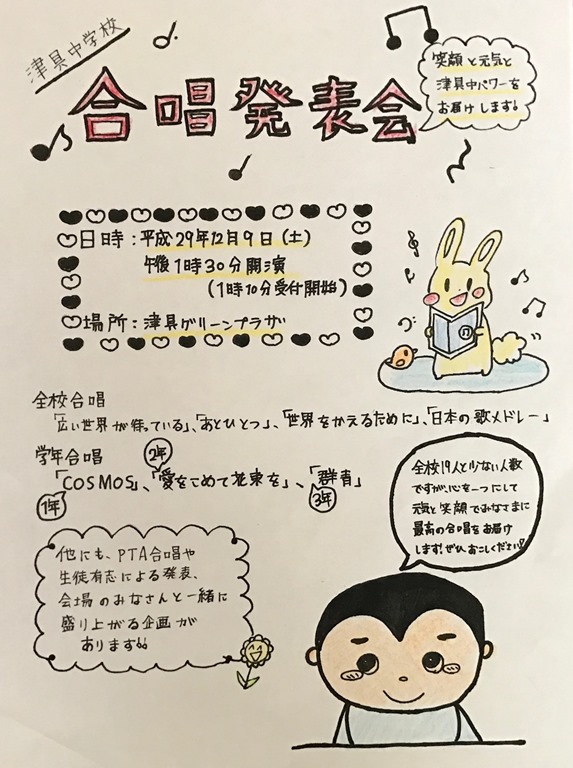 津具中学校
合唱発表会
笑顔と元気と
津具中パワーを
お届けします!
日時：平成29年12月9日（土）
午後1時30分開演
(1時10分受付開始)
場所：津具グリーンプラザ
全校合唱
「広い世界が待っている」、「あとひとつ」、「世界をかえるために」、「日本の歌メドレー」
学年合唱
「COSMOS」、「愛をこめて花束を」、「群青」
1年
2年
3年
全校19人と少ない人数
ですが、心を一つにして
元気と笑顔でみなさまに
最高の合唱をお届け
します!ぜひおこしください!!
他にも、PTA合唱や
生徒有志による発表、
会場のみなさんと一緒に
盛り上がる企画が
あります!!